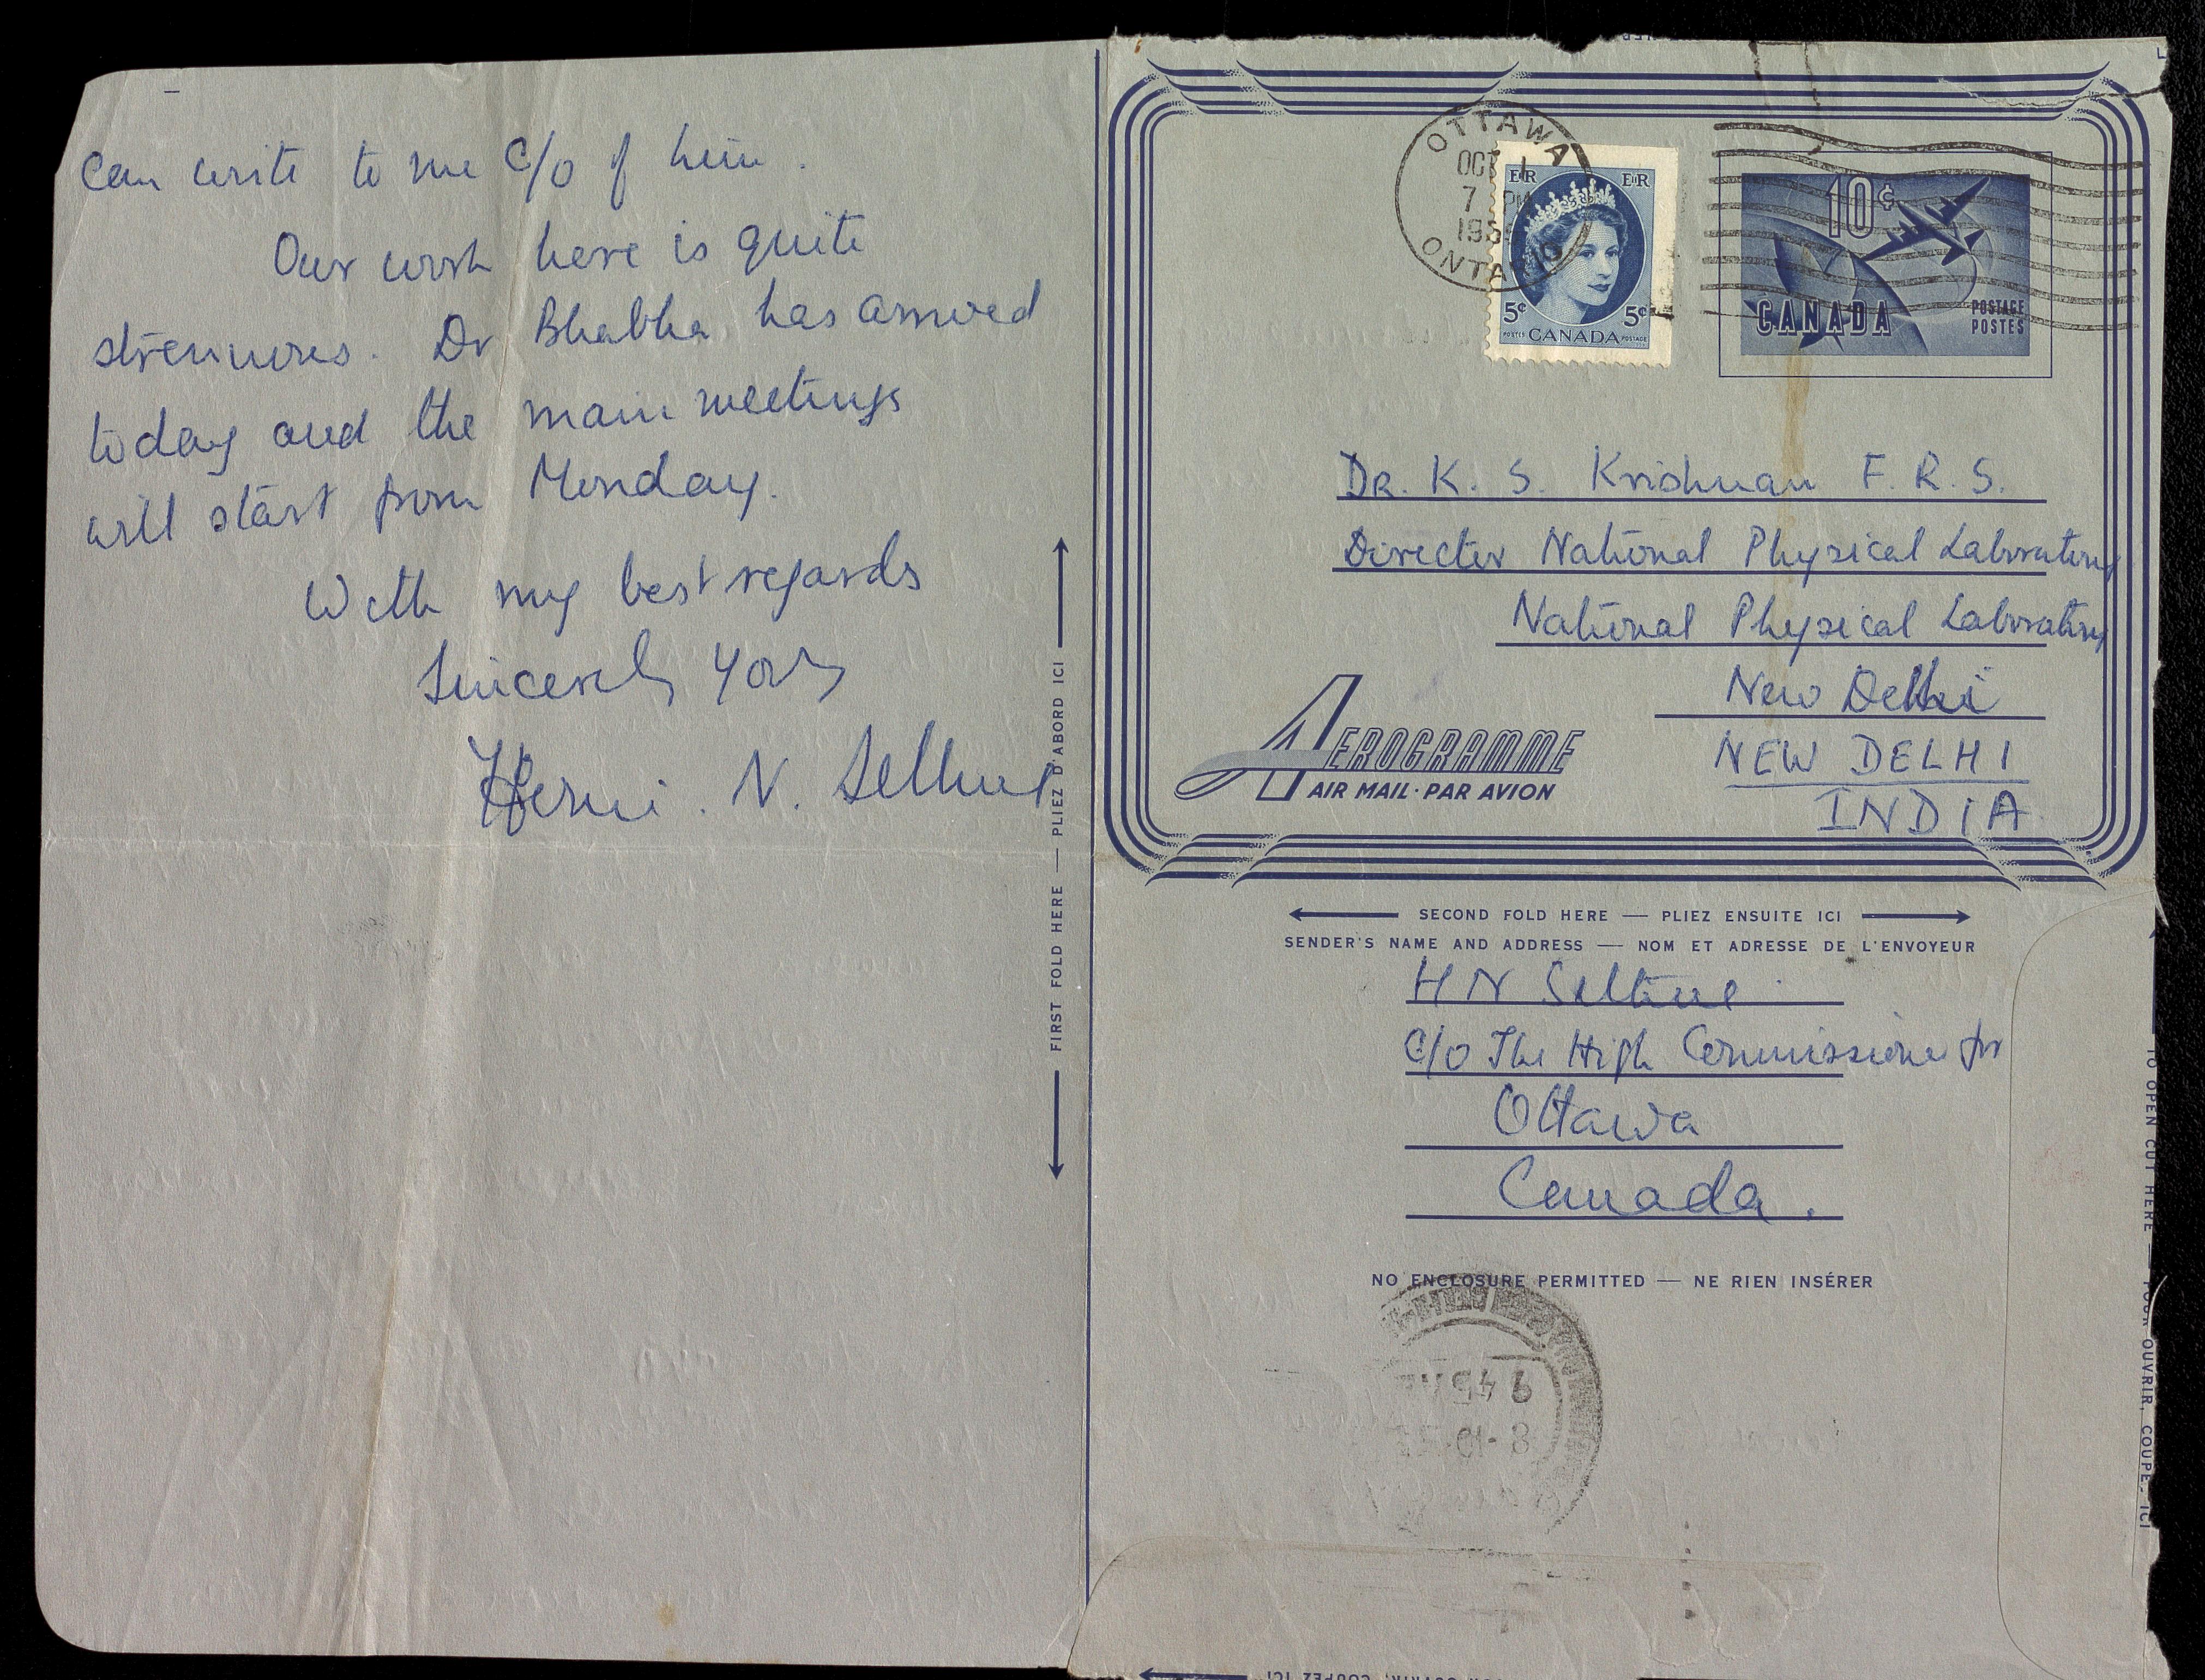 can write to me c/o of him.
Our work here is quite
strenuous. Dr Bhabha has arrived
today and the main meetings
will start from Monday.
With my best regards
Sincerely yours
Homi. N. Sethna
FIRST FOLD HERE — PLIEZ D'ABORD ICI
OTTAWA
OCT 1
7 PM
ONTARIO
E II R E II R
5¢ 5¢
POSTES CANADA POSTAGE
10¢
CANADA
POSTAGE
POSTES
Dr. K. S. Krishnan F. R. S.
Director National Physical Laboratory
National Physical Laboratory
New Delhi
NEW DELHI
INDIA
AEROGRAMME
AIR MAIL · PAR AVION
SECOND FOLD HERE — PLIEZ ENSUITE ICI
SENDER'S NAME AND ADDRESS — NOM ET ADRESSE DE L'ENVOYEUR
H N Sethna
c/o The High Commissioner for
Ottawa
Canada.
NO ENCLOSURE PERMITTED — NE RIEN INSÉRER
TO OPEN CUT HERE — POUR OUVRIR, COUPEZ ICI